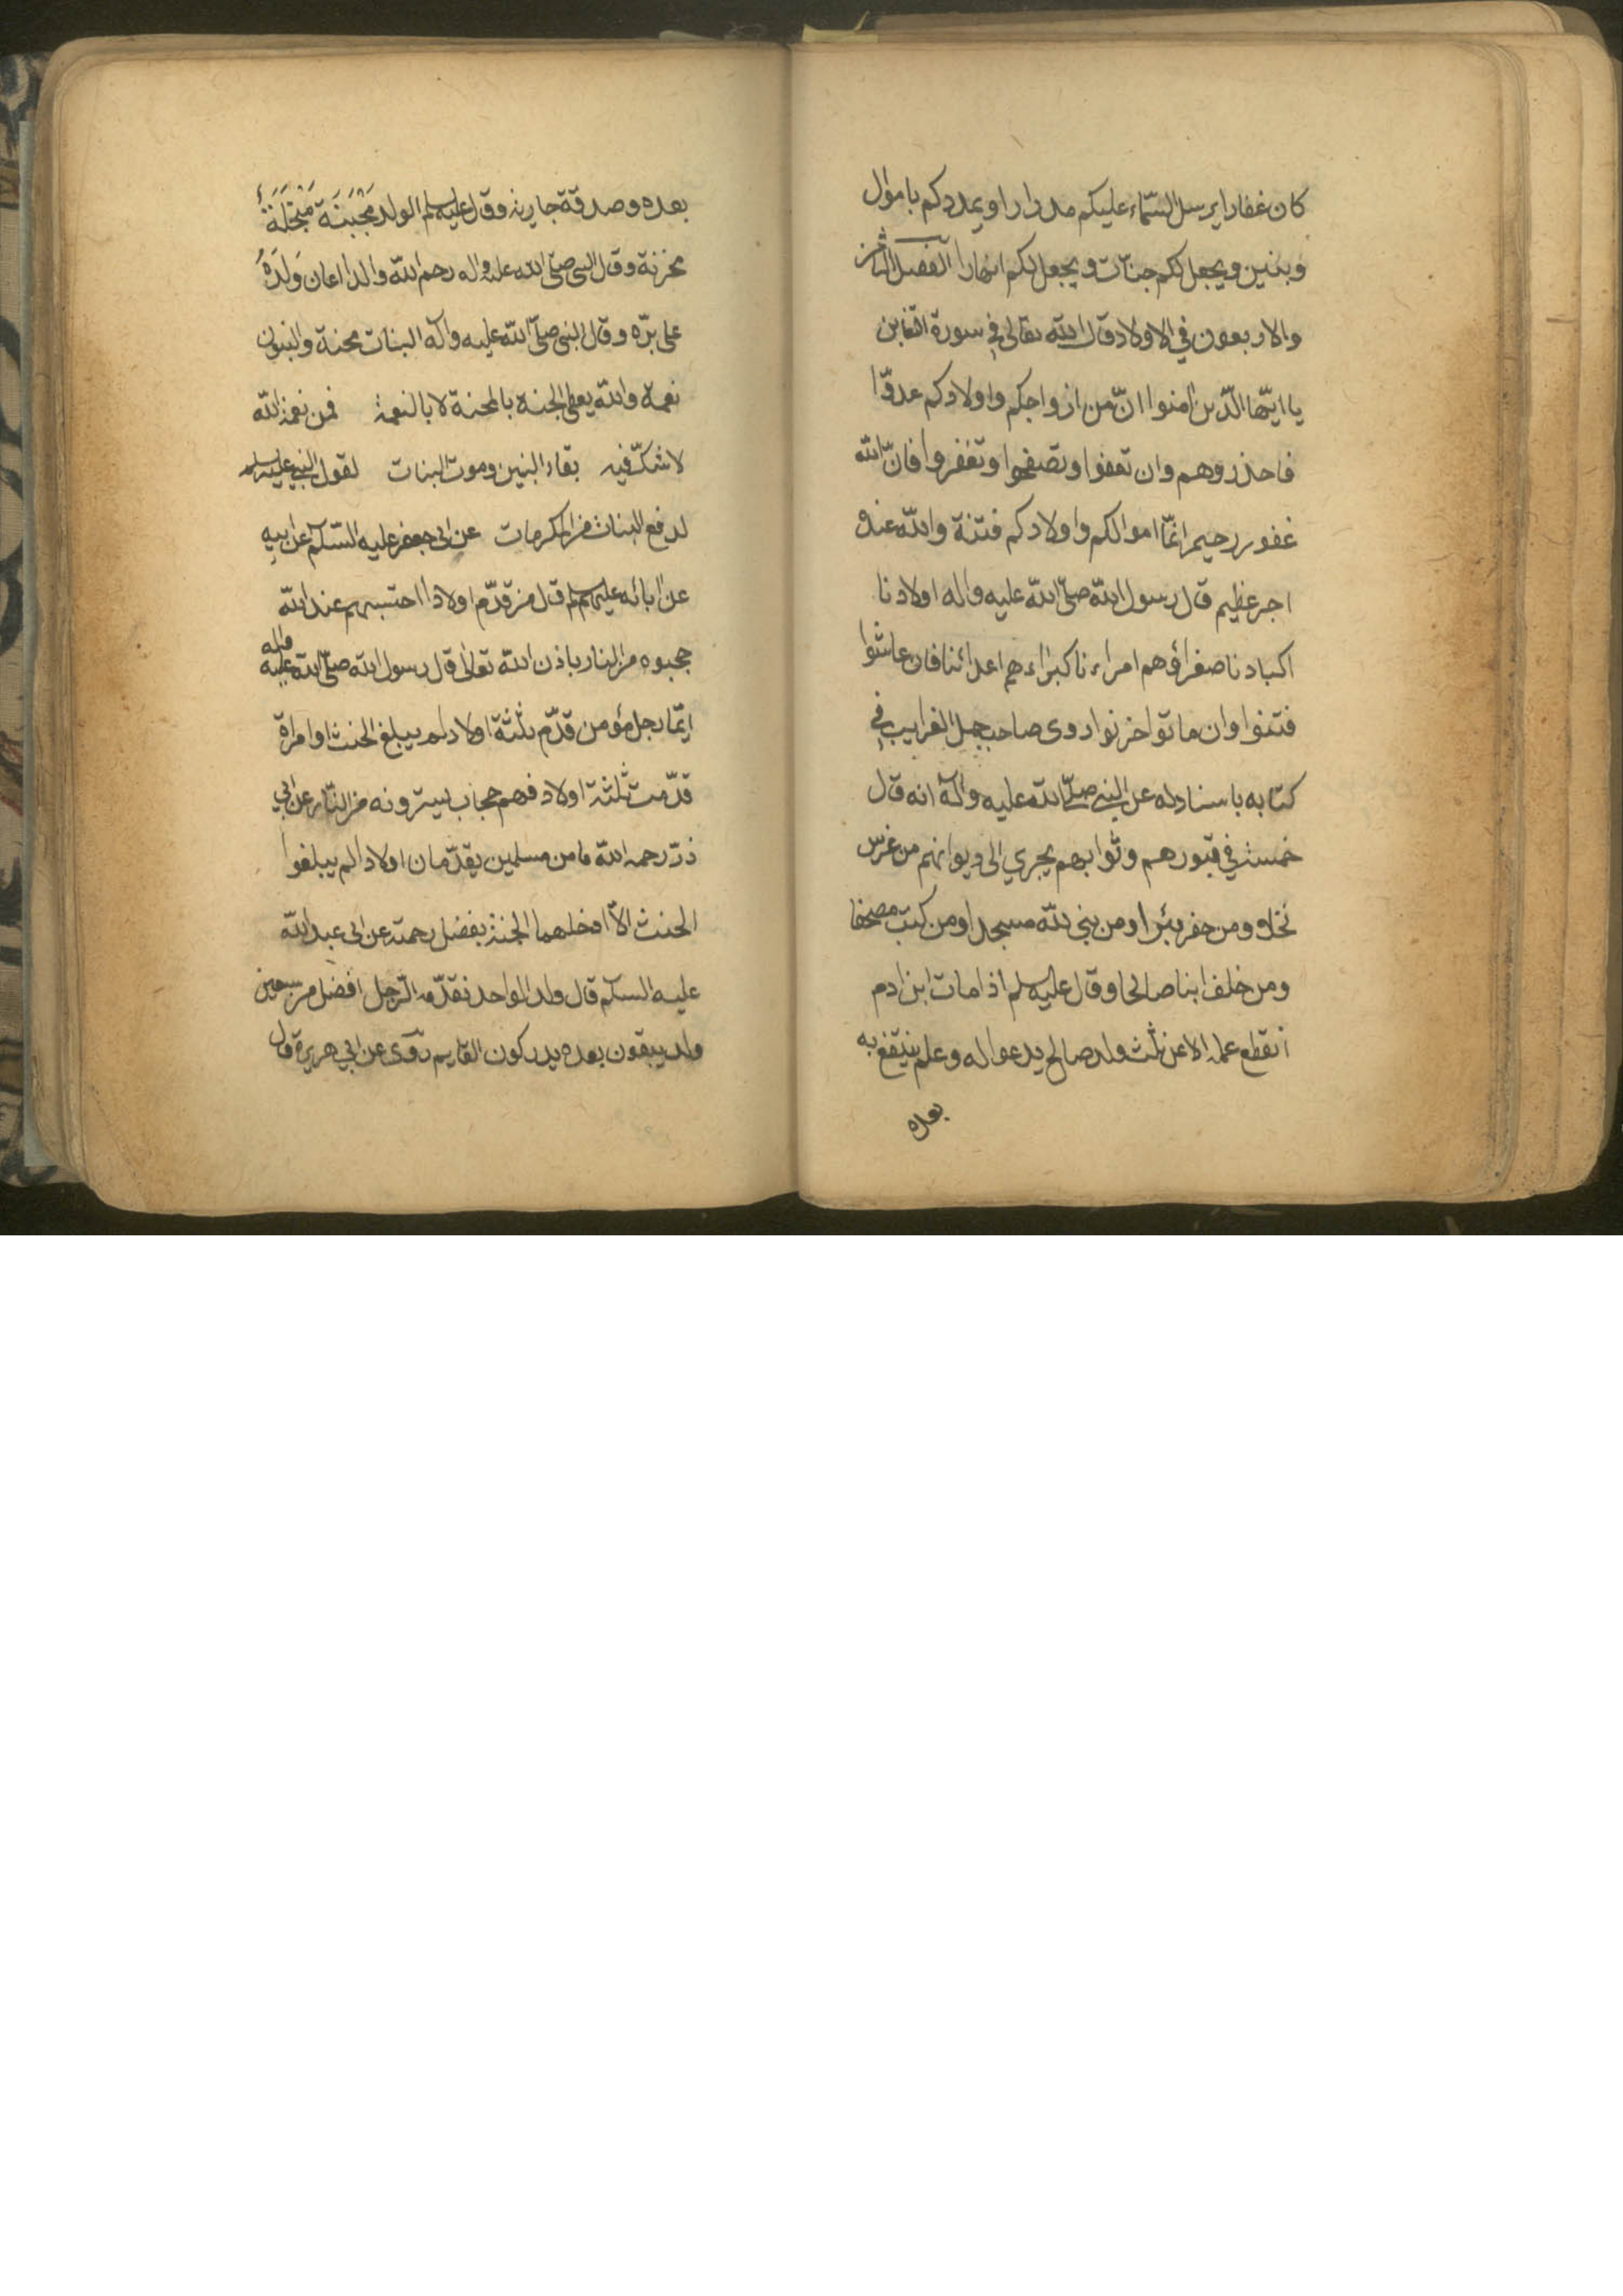 كان غفارا يرسل السّماء عليكم مدرارا ويمددكم باموال
وبنين ويجعل لكم جنات ويجعل لكم انهارا الفصل الثامن
والاربعون في الاولاد قال الله تعالى في سورة التغابن
يا ايّها الّذين امنوا انّ من ازواجكم واولادكم عدوّا
فاحذروهم وان تعفوا وتصفحوا وتغفروا فانّ الله
غفور رحيم انّما اموالكم واولادكم فتنة والله عنده
اجر عظيم قال رسول الله صلّى الله عليه واله اولادنا
اكبادنا صغراؤهم امراءنا كبراءهم اعدائنا فان عاشوا
فتنوا وان ماتوا احزنوا روى صاحب جمل الغرايب في
كتابه باسناد له عن النبي صلّى الله عليه وآله انه قال
خمسة في قبورهم وثوابهم يجري الى ديوانهم من غرس
نخلا ومن حفر بئرا ومن بنى لله مسجدا ومن كتب مصحفا
ومن خلف ابنا صالحا وقال عليه سلم اذا مات ابن ادم
انقطع عمله الا عن ثلث ولد صالح يدعوا له وعلم ينتفع به
بعده
بعده وصدقة جارية وقال عليه سلم الولد مَجْبَنَة مَبْخَلَةٌ
محزنة وقال النبي صلّى الله عليه واله رحم الله والدا اعان وَلَدَهُ
على برّه وقال النبي صلّى الله عليه وآله البنات محنة والبنون
نعمة والله يعطي الجنة بالمحنة لا بالنعمة فمن نعمة الله
لا شكّ فيه بقاء البنين وموت البنات لقول النبي عليه سلم
لدفع البنات من المكرمات عن ابي جعفر عليه السّلام عن ابيه
عن ابائه عليهم سلم قال من قدّم اولادا احتسبهم عند الله
حجبوه من النار باذن الله تعالى قال رسول الله صلّى الله عليه واله
ايّما رجل مؤمن قدّم ثلثة اولاد لم يبلغ الحنث او امراة
قدّمت ثلثة اولاد فهم حجاب يسترونه من النّار عن ابي
ذرّ رحمه الله ما من مسلمين يقدّمان اولادا لم يبلغوا
الحنث الاّ ادخلهما الجنة بفضل رحمته عن ابي عبد الله
عليه السلام قال ولد الواحد نقدّمه الرّجل افضل من سبعين
ولد يبقون بعده يدركون القايم روى عن ابي هريرة قال